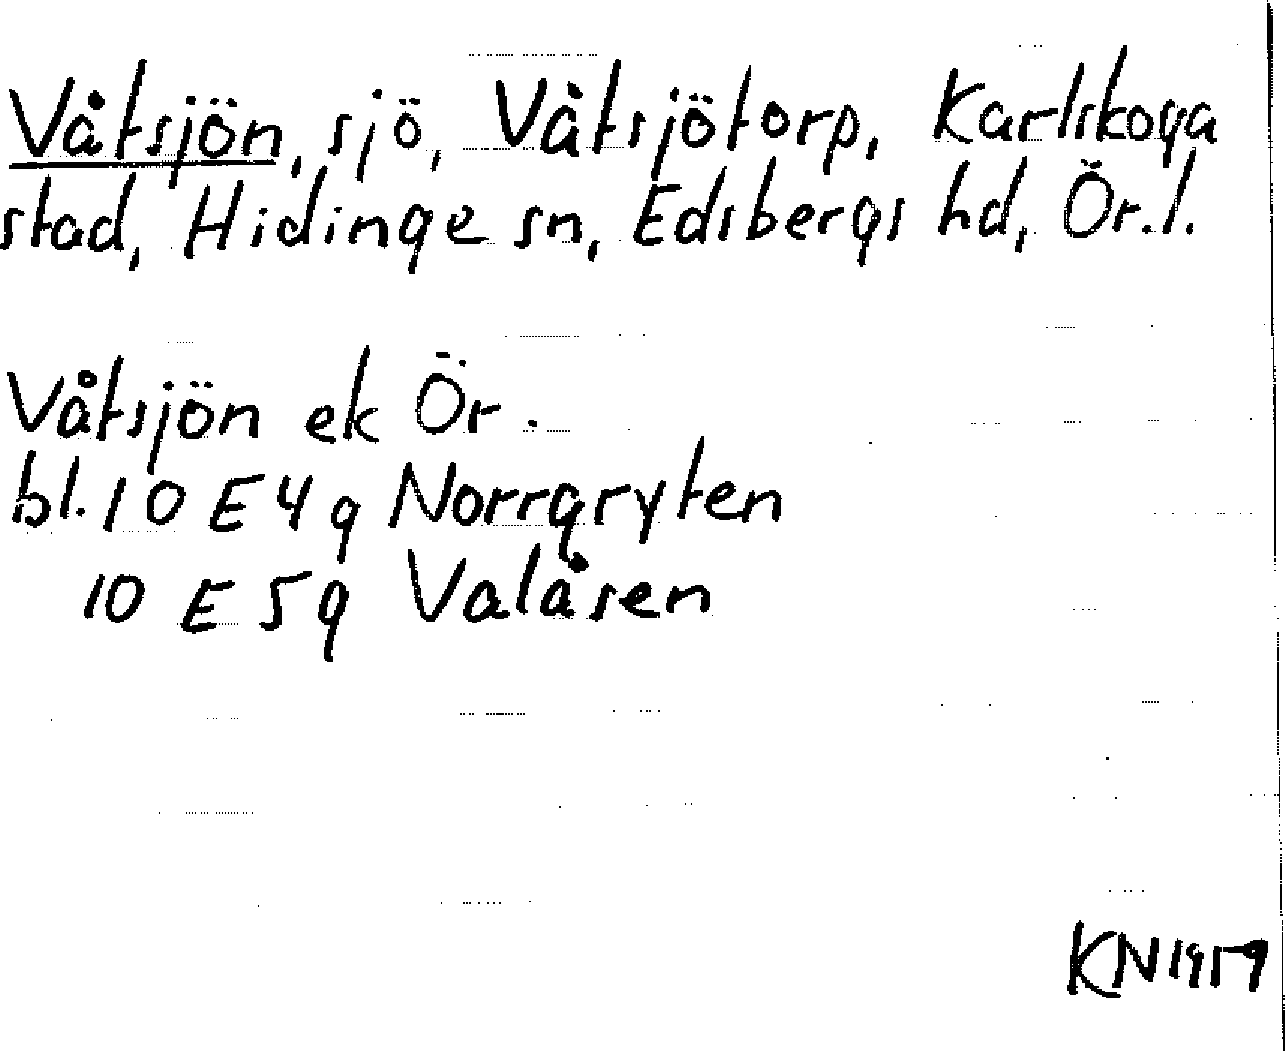 Våtsjön, sjö, Våtsjötorp, Karlskoga
stad, Hidinge sn, Edsbergs hd, Ör.l.
Våtsjön ek Ör.
bl. 10 E 4 g Norrgryten
10 E 5 g Valåsen
KN 1959